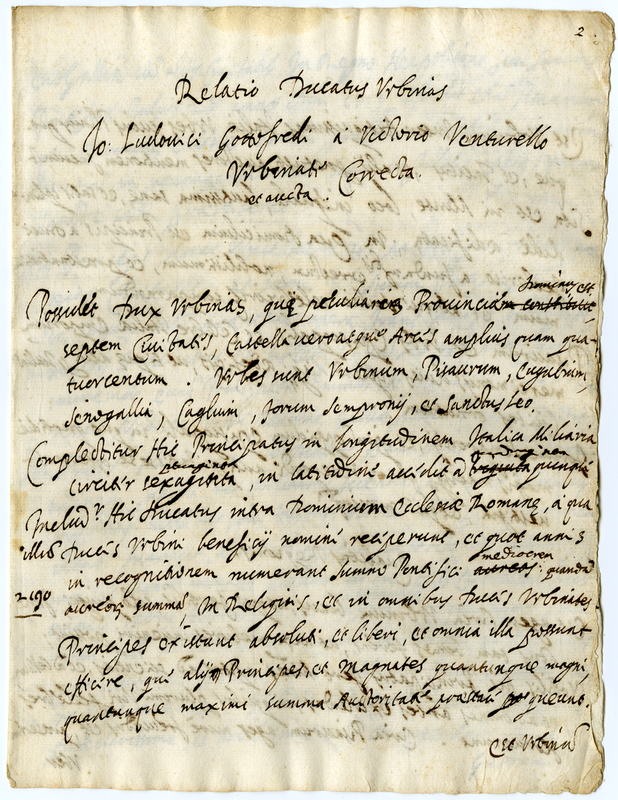 2
Relatio Ducatus Urbinas
Jo: Ludovici Gottofredi a Victorio Venturello
Urbinate Correcta.
et aucta.
Possidet Dux Urbinas, quę peculiarem Provinciam
septem Civitates, Castella vero atque Arcis amplius quam qua-
tuorcentum. Urbes sunt Urbinum, Pisaurum, Eugubium,
Senogallia, Calium, forum Sempronij, et Sanctus Leo.
Complectitur Hic Principatus in longitudinem Italica Miliaria
circiter sexaginta, in latitudine accedit ad quinque
Includr Hic Ducatus intra Dominium Ecclesiæ Romanę, a qua
illud Duces Urbini beneficij nomine recipiunt, et quot annis
mediocrem
in recognitionem numerant Summo Pontifici aureos:
2190
aureorum summam, In Reliquis, et in omnibus Duces Urbinates
Principes existunt absoluti, et liberi, et omnia illa possunt
efficere, quę alij Principes, et magnates quantunque magni
quantunque maximi summa Autoritate praestare queunt.
Est Urbinum